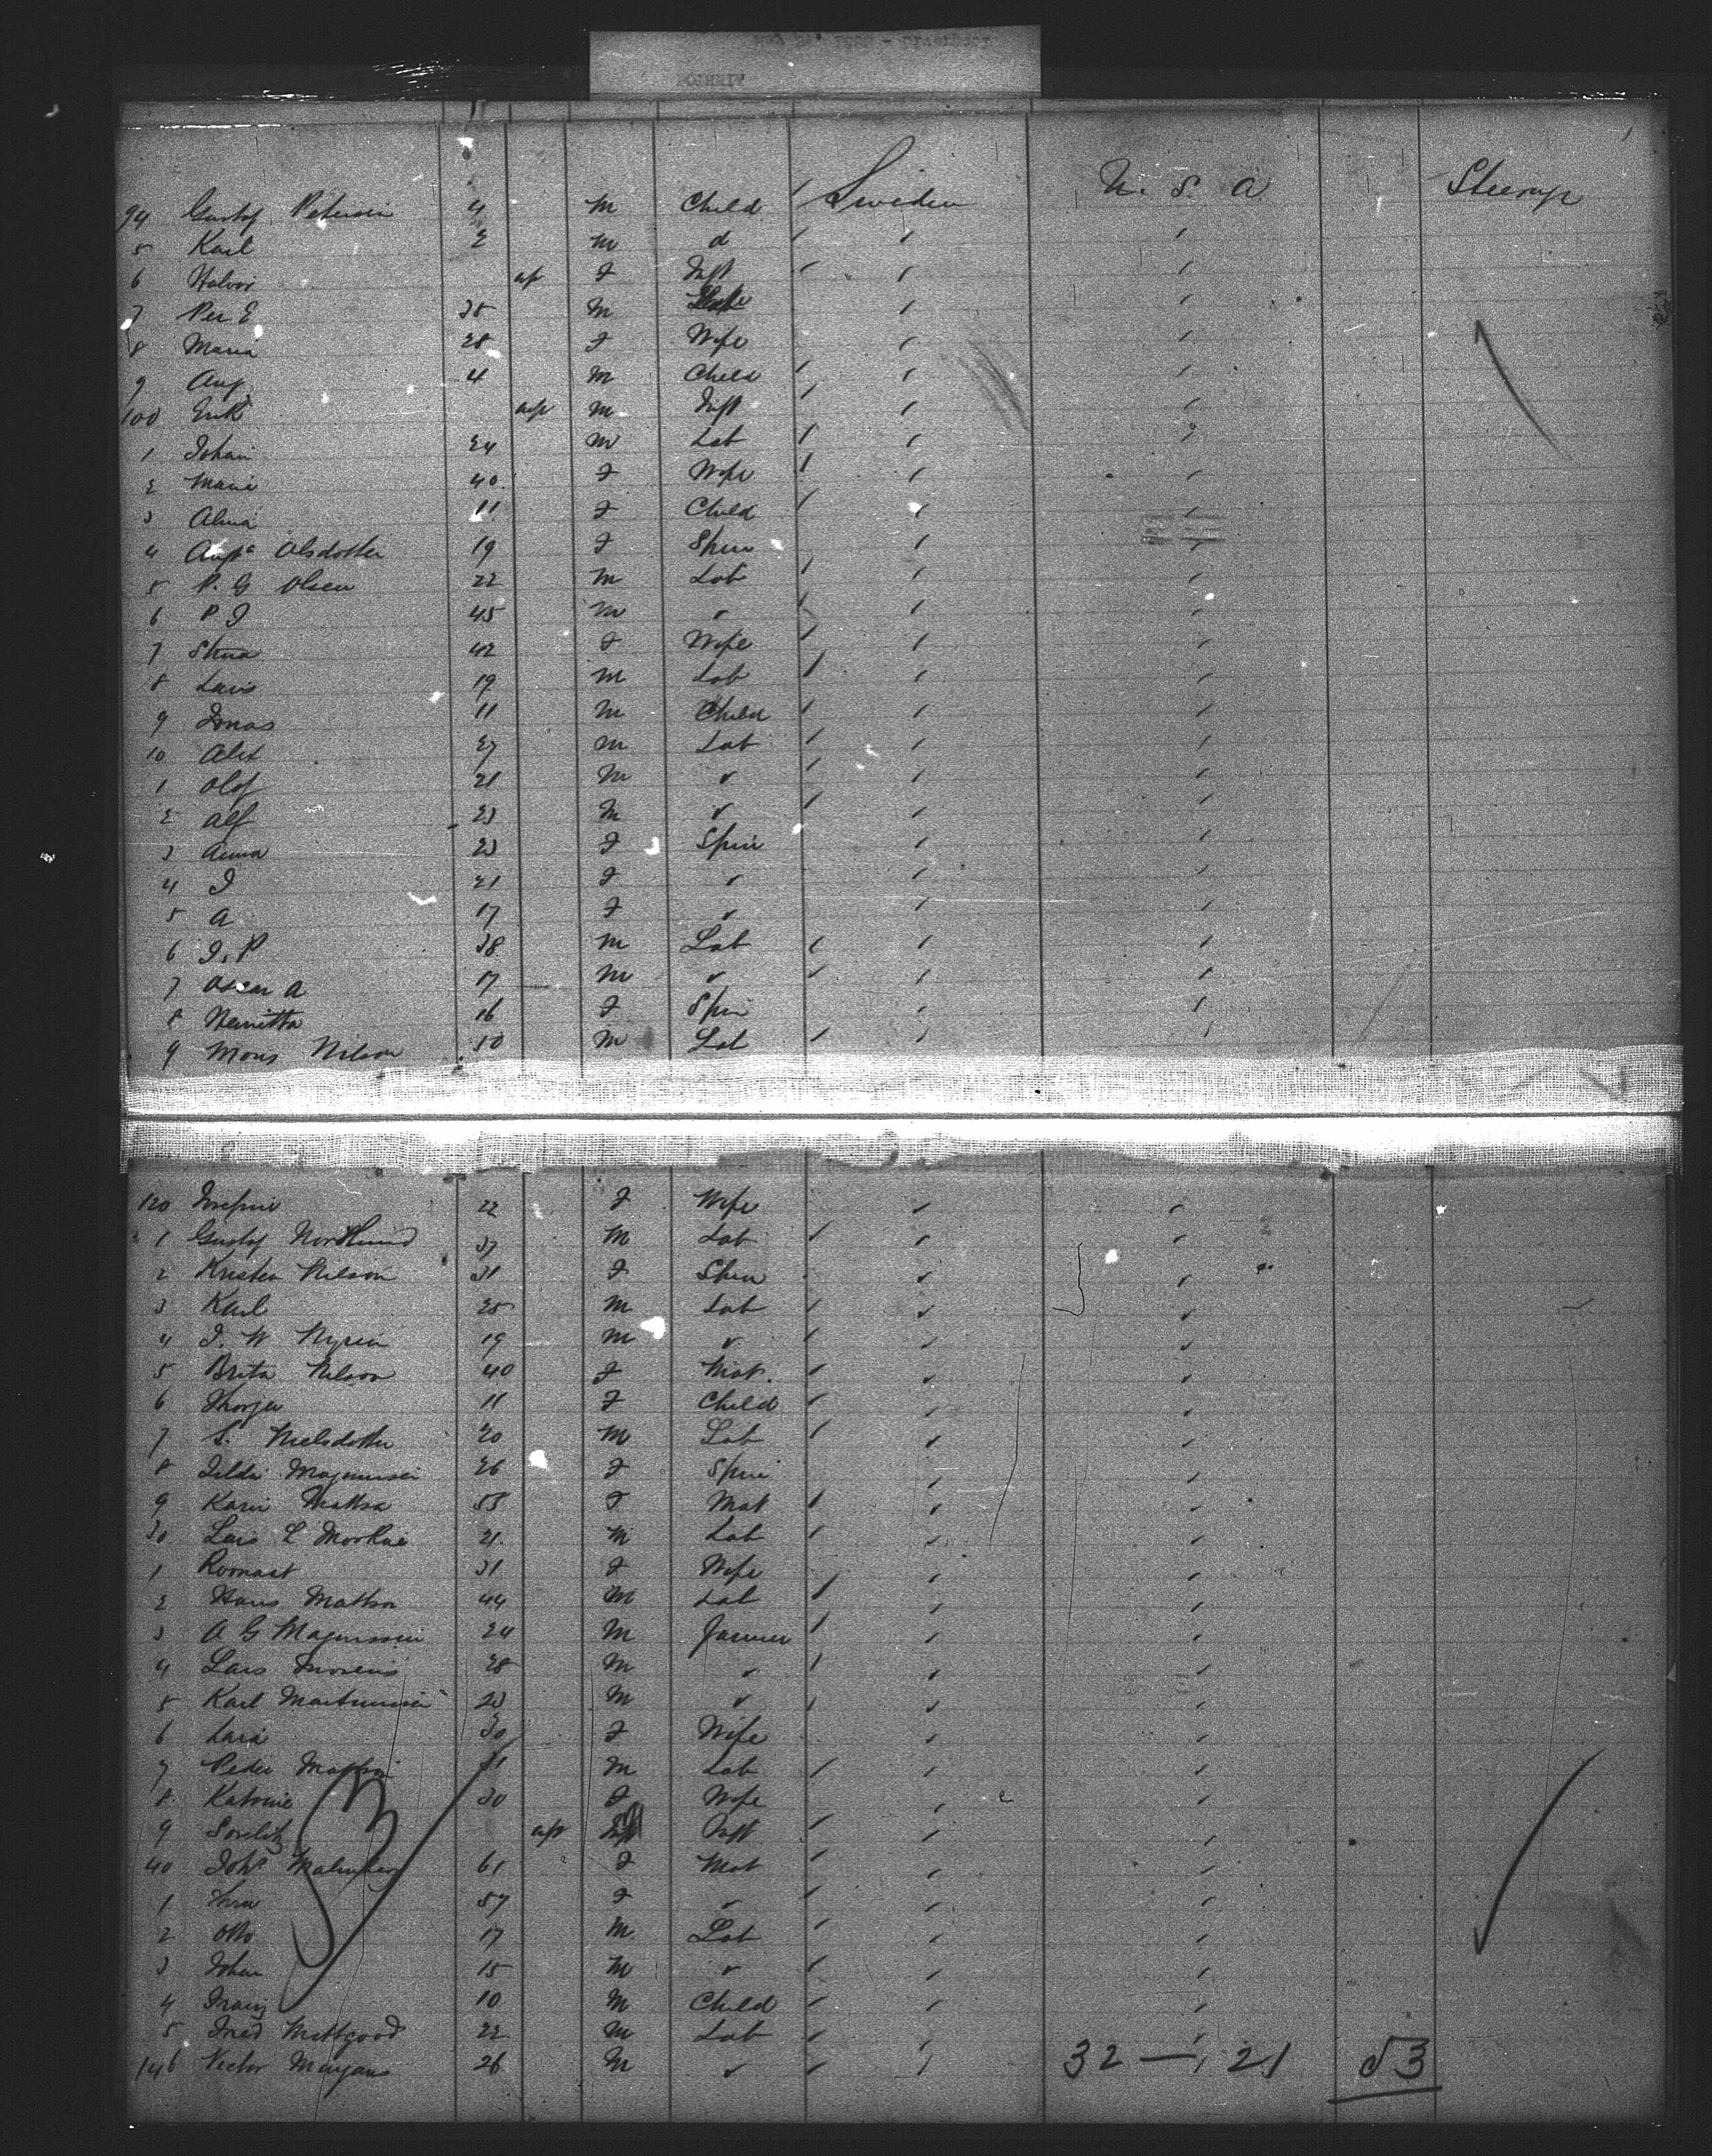 94 Gustaf Petersen 4 M Child Sweden U. S. A Steerage
5 Karl 2 M d
6 Halvor inf F Inft
7 Per E 35 M Lab
8 Maria 28 F Wife
9 Aug 4 M Child
100 Erik inf M Inft
1 Johan 24 M Lab
2 Maria 40 F Wife
3 Alma 11 F Child
4 Augta Olsdotter 19 F Spin
5 P. G Olsen 22 M Lab
6 P J 45 M "
7 Stina 42 F Wife
8 Lars 19 M Lab
9 Jonas 11 M Child
10 Alex 27 M Lab
1 Olof 21 M "
2 Alf 23 M "
3 Anna 23 F Spin
4 J 21 F "
5 A 17 F "
6 J. P 38 M Lab
7 Oscar A 17 M "
8 Henrietta 16 F Spin
9 Mons Nilson 30 M Lab
120 Josefine 22 F Wife
1 Gustaf Nordlund 37 M Lab
2 Kristen Nilson 31 F Spin
3 Karl 25 M Lab
4 J. W Nyren 19 M "
5 Brita Nilson 40 F Mat.
6 11 F Child
7 S. Nielsdotter 20 M Lab
8 Tilda Magnussen 26 F Spin
9 Karin Mattsa 53 F Mat
30 Lars L 21 M Lab
1 31 F Wife
2 Hans Mattson 44 M Lab
3 A G Magnussen 24 M Farmer
4 Lars 28 M "
5 Karl Martinussen 23 M "
6 Lara 30 F Wife
7 Peder Mattson 31 M Lab
8 Katrine 30 F Wife
9 inf Inft
40 Joha 61 F Mat
1 57 F "
2 Otto 17 M Lab
3 Johan 15 M "
4 Franz 10 M Child
5 Fred Mittgood 22 M Lab
146 Victor 26 M " 32 — 21 53